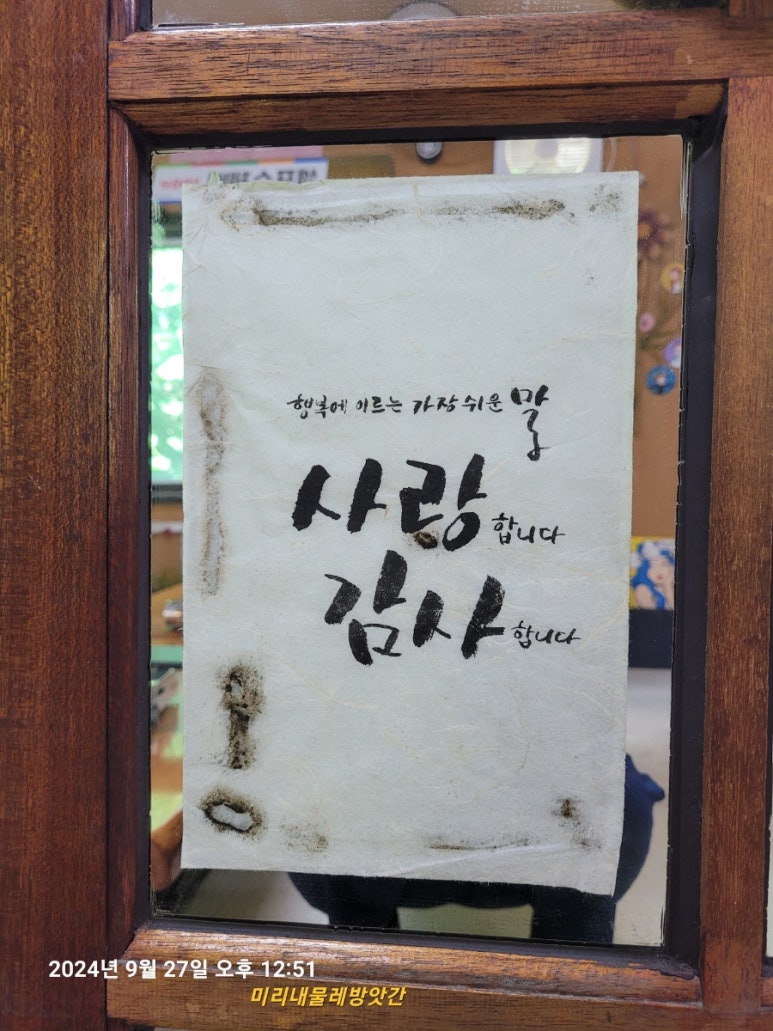 행복에 이르는 가장 쉬운 말
사랑합니다
감사합니다
2024년 9월 27일 오후 12:51
미리내물레방앗간